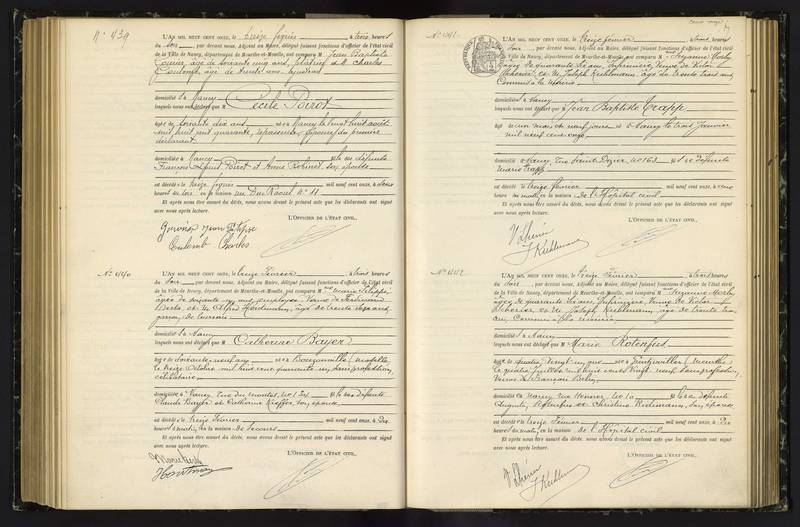 N° 439
L'AN MIL NEUF CENT ONZE, le treize février, à trois heures
du soir, par devant nous, Adjoint au Maire, délégué faisant fonctions d'officier de l'état civil
de la Ville de Nancy, département de Meurthe-et-Moselle, ont comparu M Jean Baptiste
âgé de soixante cinq ans, et M Charles
Coulomb, âgé de trente ans,
domicilié s à Nancy
lesquels nous ont déclaré que M Cécile Poirot
âgée de soixante dix ans née à Nancy le vingt huit août
mil huit cent quarante, épouse du premier
déclarant
domiciliée à Nancy fille de défunts
François Louis Poirot et Anne Robinet son épouse
est décédée le treize février mil neuf cent onze, à deux
heures du soir, en sa maison rue Duc Raoul N° 11
Et après nous être assuré du décès, nous avons dressé le présent acte que les déclarants ont signé
avec nous après lecture.
L'OFFICIER DE L'ÉTAT CIVIL,
Coulomb Charles
N° 440
L'AN MIL NEUF CENT ONZE, le treize Février, à trois heures
du soir, par devant nous, Adjoint au Maire, délégué faisant fonctions d'officier de l'état civil
de la Ville de Nancy, département de Meurthe-et-Moselle, ont comparu Mme Marie
âgée de soixante un ans, employée, Veuve de Ferdinand
et M Alfred Hartmann, âgé de trente
garçon de bureau
domicilié s à Nancy
lesquels nous ont déclaré que M Catherine Bayer
âgée de soixante neuf ans née à Bouzonville (Moselle)
le treize Octobre mil huit cent quarante un, sans profession,
célibataire
domiciliée à Nancy, rue du Montet, N° 134 fille de défunts
Claude Bayer et Catherine son épouse
est décédée le treize Février mil neuf cent onze, à dix
heures du matin, en la maison de secours
Et après nous être assuré du décès, nous avons dressé le présent acte que les déclarants ont signé
avec nous après lecture.
L'OFFICIER DE L'ÉTAT CIVIL,
Hartmann
N° 441
L'AN MIL NEUF CENT ONZE, le treize février, à trois heures
du soir, par devant nous, Adjoint au Maire, délégué faisant fonctions d'officier de l'état civil
de la Ville de Nancy, département de Meurthe-et-Moselle, ont comparu Mme Suzanne
âgée de quarante six ans, Infirmière, Veuve de Victor
et M Joseph Kuhlmann, âgé de trente trois ans,
Commis à la mairie
domicilié s à Nancy
lesquels nous ont déclaré que M Jean Baptiste Trapp
âgé de un mois et neuf jours né à Nancy le trois Janvier
mil neuf cent onze
domicilié à Nancy, rue Saint Dizier, N° 163 fils de
Marie Trapp
est décédé le treize février mil neuf cent onze, à onze
heures du matin, en la maison de l'Hôpital civil
Et après nous être assuré du décès, nous avons dressé le présent acte que les déclarants ont signé
avec nous après lecture.
L'OFFICIER DE L'ÉTAT CIVIL,
J Kuhlmann
N° 442
L'AN MIL NEUF CENT ONZE, le treize Février, à trois heures
du soir, par devant nous, Adjoint au Maire, délégué faisant fonctions d'officier de l'état civil
de la Ville de Nancy, département de Meurthe-et-Moselle, ont comparu Mme Suzanne
âgée de quarante six ans, Infirmière, Veuve de Victor
et M Joseph Kuhlmann, âgé de trente trois
ans, Commis à la mairie
domicilié s à Nancy
lesquels nous ont déclaré que M Marie Rotenfus
âgée de quatre vingt un ans née à
le quatre Juillet mil huit cent vingt neuf, sans profession,
Veuve de François
domiciliée à Nancy, rue N° 10 fille de défunts
Augustin et Christine son épouse
est décédée le treize Février mil neuf cent onze, à dix
heures du matin, en la maison de l'Hôpital civil
Et après nous être assuré du décès, nous avons dressé le présent acte que les déclarants ont signé
avec nous après lecture.
L'OFFICIER DE L'ÉTAT CIVIL,
J Kuhlmann